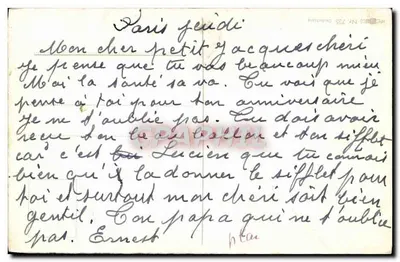 Paris jeudi
Mon cher petit Jacques chéri
je pense que tu vas beaucoup mieu
Moi la santé sa va. Tu vois que je
pense a toi pour ton anniversaire
Je ne t'oublie pas. Tu dois avoir
reçu ton et ton sifflet
car c'est Lucien que tu connais
bien qu'il la donner le sifflet pour
toi et surtout mon chéri soit bien
gentil. Ton papa qui ne t'oublie
pas. Ernest